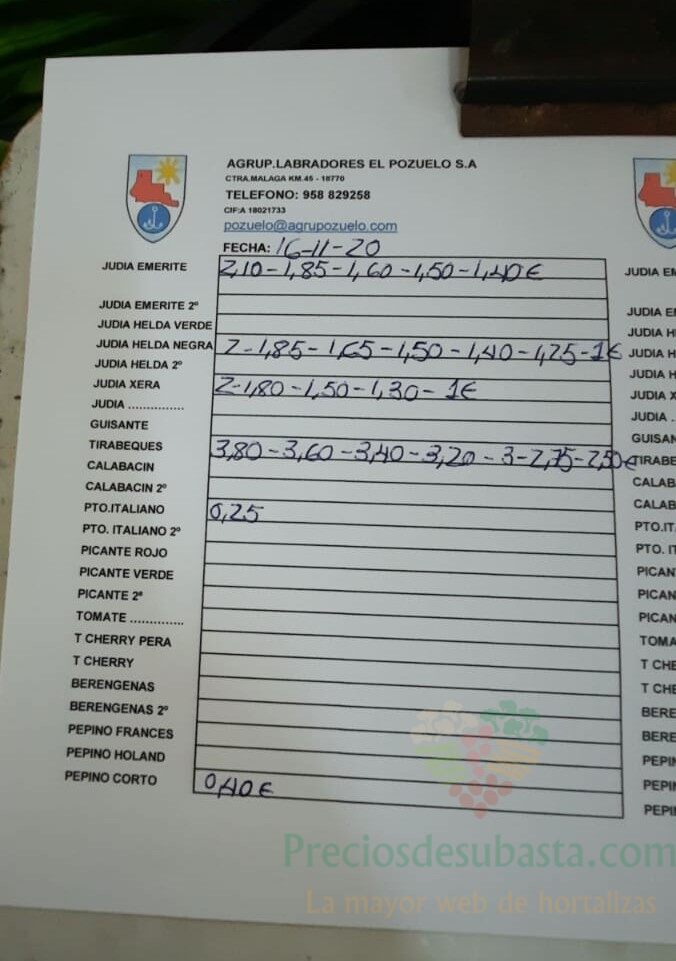 AGRUP.LABRADORES EL POZUELO S.A
CTRA.MALAGA KM.45 - 18770
TELEFONO: 958 829258
CIF:A 18021733
pozuelo@agrupozuelo.com
FECHA: 16-11-20
JUDIA EMERITE 2,10-1,85-1,60-1,50-1,40€
JUDIA EMERITE 2º
JUDIA HELDA VERDE
JUDIA HELDA NEGRA 2-1,85-1,65-1,50-1,40-1,25-1€
JUDIA HELDA 2º
JUDIA XERA 2-1,80-1,50-1,30-1€
JUDIA ...............
GUISANTE
TIRABEQUES 3,80-3,60-3,40-3,20-3-2,75-2,50€
CALABACIN
CALABACIN 2º
PTO.ITALIANO 0,25
PTO. ITALIANO 2º
PICANTE ROJO
PICANTE VERDE
PICANTE 2º
TOMATE ..............
T CHERRY PERA
T CHERRY
BERENGENAS
BERENGENAS 2º
PEPINO FRANCES
PEPINO HOLAND
PEPINO CORTO 0,40€
JUDIA EM
JUDIA E
JUDIA H
JUDIA H
JUDIA H
JUDIA X
JUDIA .
GUISAN
TIRABE
CALAB
CALAB
PTO.IT
PTO. I
PICAN
PICAN
PICAN
TOMA
T CHE
T CHE
BERE
BERE
PEPI
PEPI
PEPI
Preciosdesubasta.com
La mayor web de hortalizas